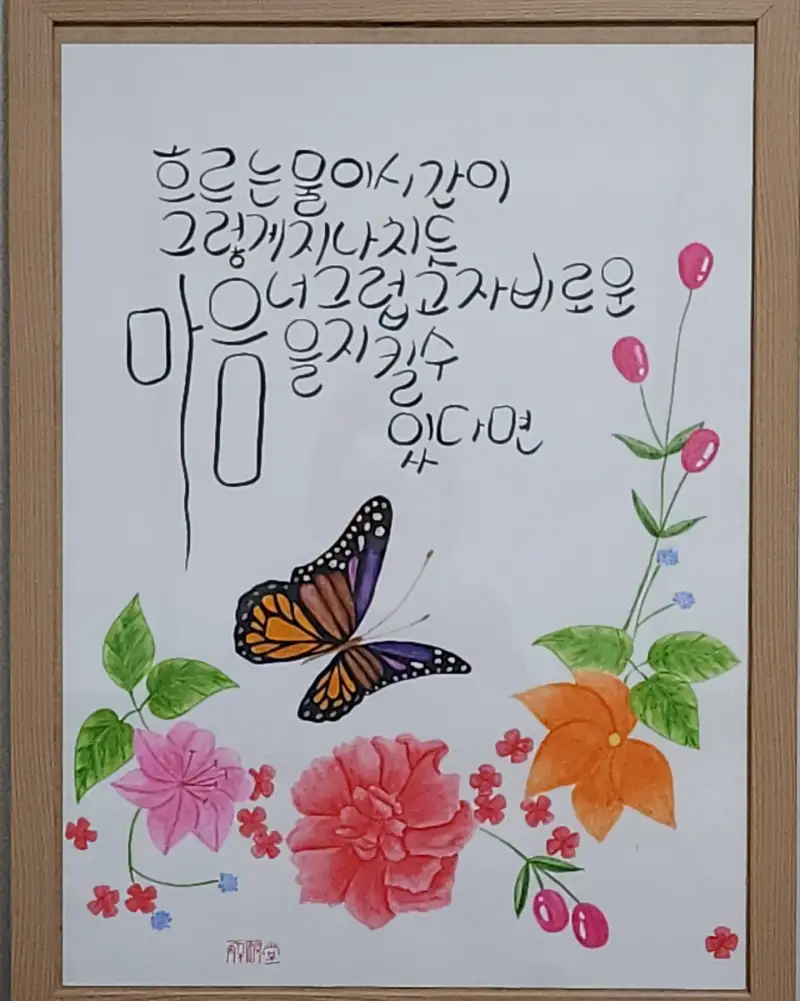 흐르는물이시간이
그렇게지나치듯
너그럽고자비로운
마음을지킬수
있다면